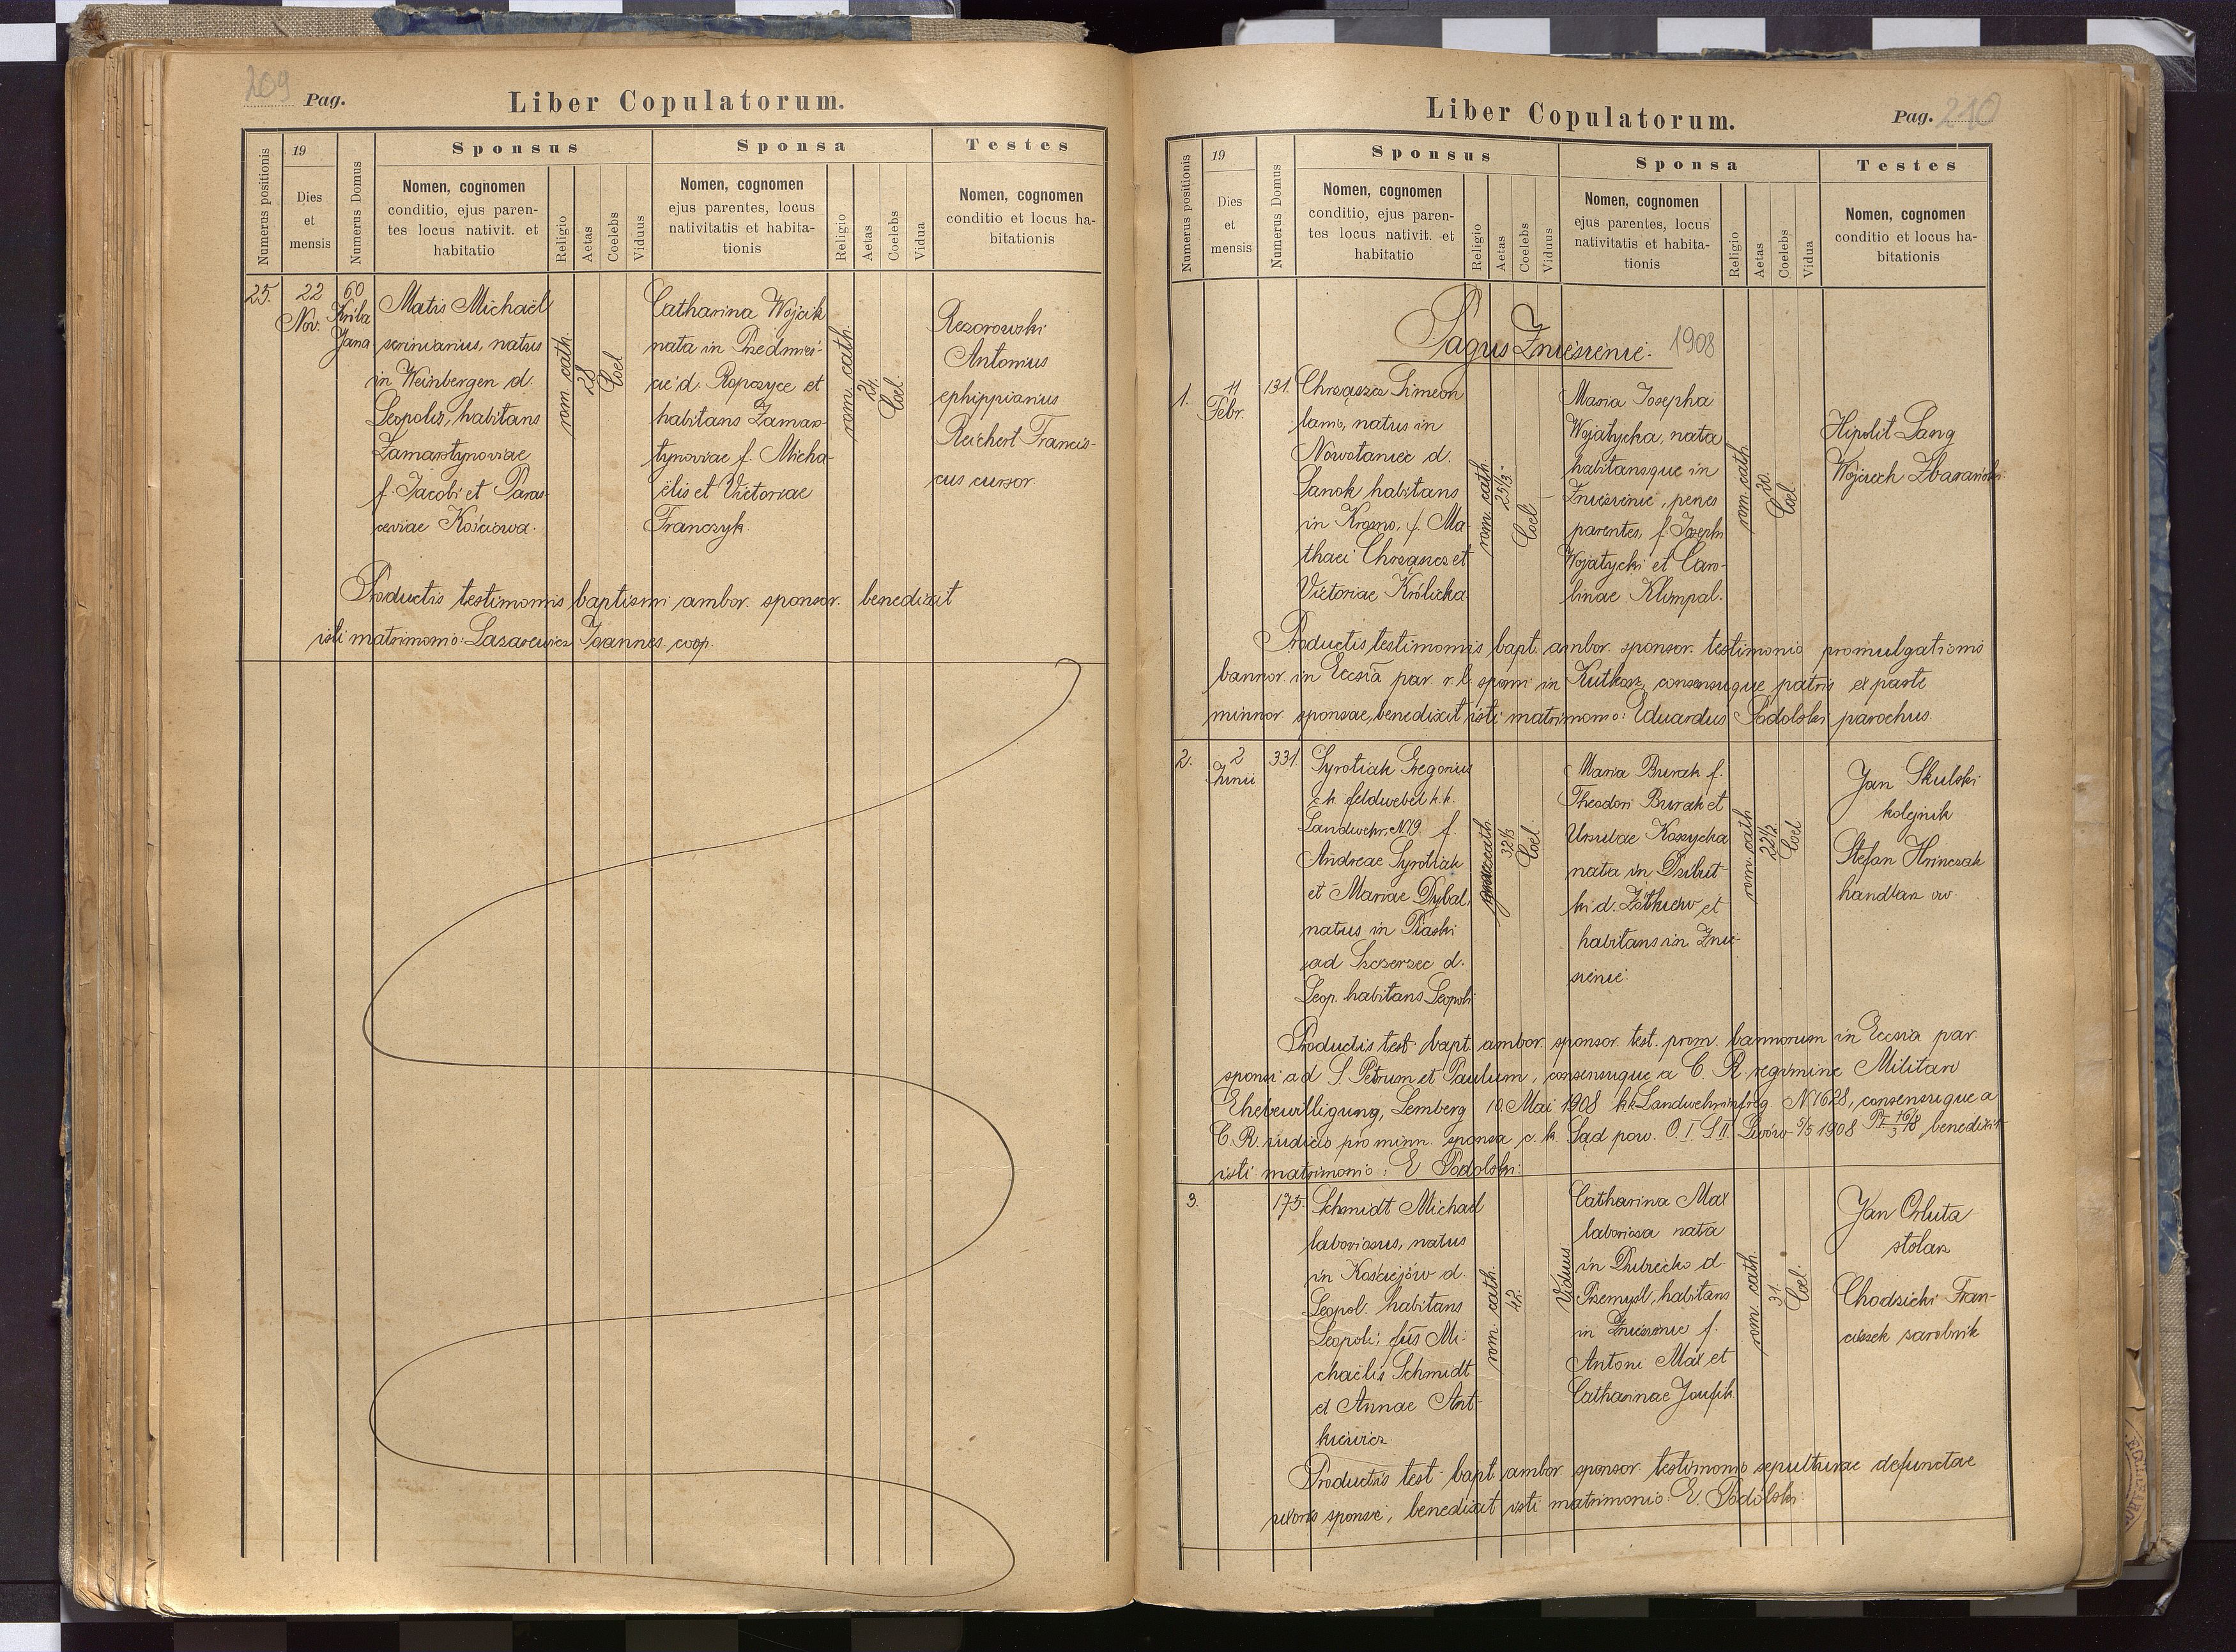 209 Pag.
Liber Copulatorum.
Numerus positionis
19
Dies
et
mensis
Numerus Domus
Sponsus
Nomen, cognomen
conditio, ejus paren-
tes locus nativit. et
habitatio
Religio
Aetas
Coelebs
Viduus
Sponsa
Nomen, cognomen
ejus parentes, locus
nativitatis et habita-
tionis
Religio
Aetas
Coelebs
Vidua
Testes
Nomen, cognomen
conditio et locus ha-
bitationis
25.
22
Nov.
60
Króla
Jana
Matis Michaël
scriniarius, natus
in Weinbergen d.
Leopolis, habitans
Zamarstynoviae
f. Jacobi et Paras-
ceviae Kościowa.
rom. cath.
28
Coel
Catharina Wójcik
nata in Przedmieś-
cie d. Ropczyce et
habitans Zamar-
tynoviae f. Micha-
ëlis et Victoriae
Franczyk.
rom. cath.
24.
Coel.
Rezorowski
Antonius
ephippiarius
Reichert Francis-
cus cursor.
Productis testimoniis baptismi ambor. sponsor. benedixit
isti matrimonio: Lazarewicz Joannes coop.
Liber Copulatorum.
Pag. 210
Numerus positionis
19
Dies
et
mensis
Numerus Domus
Sponsus
Nomen, cognomen
conditio, ejus paren-
tes locus nativit. et
habitatio
Religio
Aetas
Coelebs
Viduus
Sponsa
Nomen, cognomen
ejus parentes, locus
nativitatis et habita-
tionis
Religio
Aetas
Coelebs
Vidua
Testes
Nomen, cognomen
conditio et locus ha-
bitationis
Pagus Zniesienie. 1908
1.
11
Febr.
131.
Chrząszcz Simeon
natus in
Nowotaniec d.
Sanok habitans
in Krosno, f. Ma-
thaei Chrząszcz et
Victoriae Królicka
rom. cath.
25⅓
Coel.
Maria Josepha
Wojatycka, nata
habitansque in
Zniesienie, penes
parentes, f. Josephi
Wojatycki et Caro-
linae Klimpal.
rom. cath
20.
Coel.
Hipolit Lang
Wojciech Zbarański
Productis testimoniis bapt. ambor. sponsor. testimonio promulgationis
bannor. in Eccsia par. r. l. sponsi in Kutkorz, consensuque patris ex parte
minnor sponsae, benedixit isti matrimonio: Eduardus Podolski parochus.
2.
2
Junii
331
Syrotiak Gregorius
c.k. feldwebel k.k.
Landwehr. N19. f.
Andreae Syrotiak
et Mariae Dybal,
natus in Piaski
ad Szczerzec d.
Leop. habitans Leopoli
32⅓
Coel
Maria Burak f.
Theodori Burak et
Ursulae Koszycka
nata in
d. Żółkiew et
habitans in Znie-
sienie.
rom cath
22½
Coel
Jan Skulski
kolejnik
Stefan Hrinczak
handlarz
Productis test bapt. ambor. sponsor. test. prom. bannorum in Eccsia par.
sponsi ad S. Petrum et Paulum, consensuque a C. R. regimine Militari
Ehebewilligung, Lemberg 10. Mai 1908 kk Landwehrinfreg. N1628, consensuque a
C. R. iudicio pro minn. sponsa c. k. Sąd pow. O. I S II Lwów 1908 benedixit
isti matrimonio: E Podolski.
3.
175.
Schmidt Michael
laboriosus, natus
in Kościejów d.
Leopol. habitans
Leopoli, fius Mi-
chaëlis Schmidt
et Annae Ant-
kiewicz
rom. cath.
42.
Viduus
Catharina Max
laboriosa nata
in Dubiecko d.
Przemyśl, habitans
in Zniesienie f.
Antoni Max et
Catharinae Joufik
rom. cath
31
Coel.
Jan Orluta
stolarz
Chodzicki Fran-
ciszek zarobnik
Productis test bapt. ambor sponsor testimonio sepulturae defunctae
uxoris sponsi, benedixit isti matrimonio: E. Podolski.